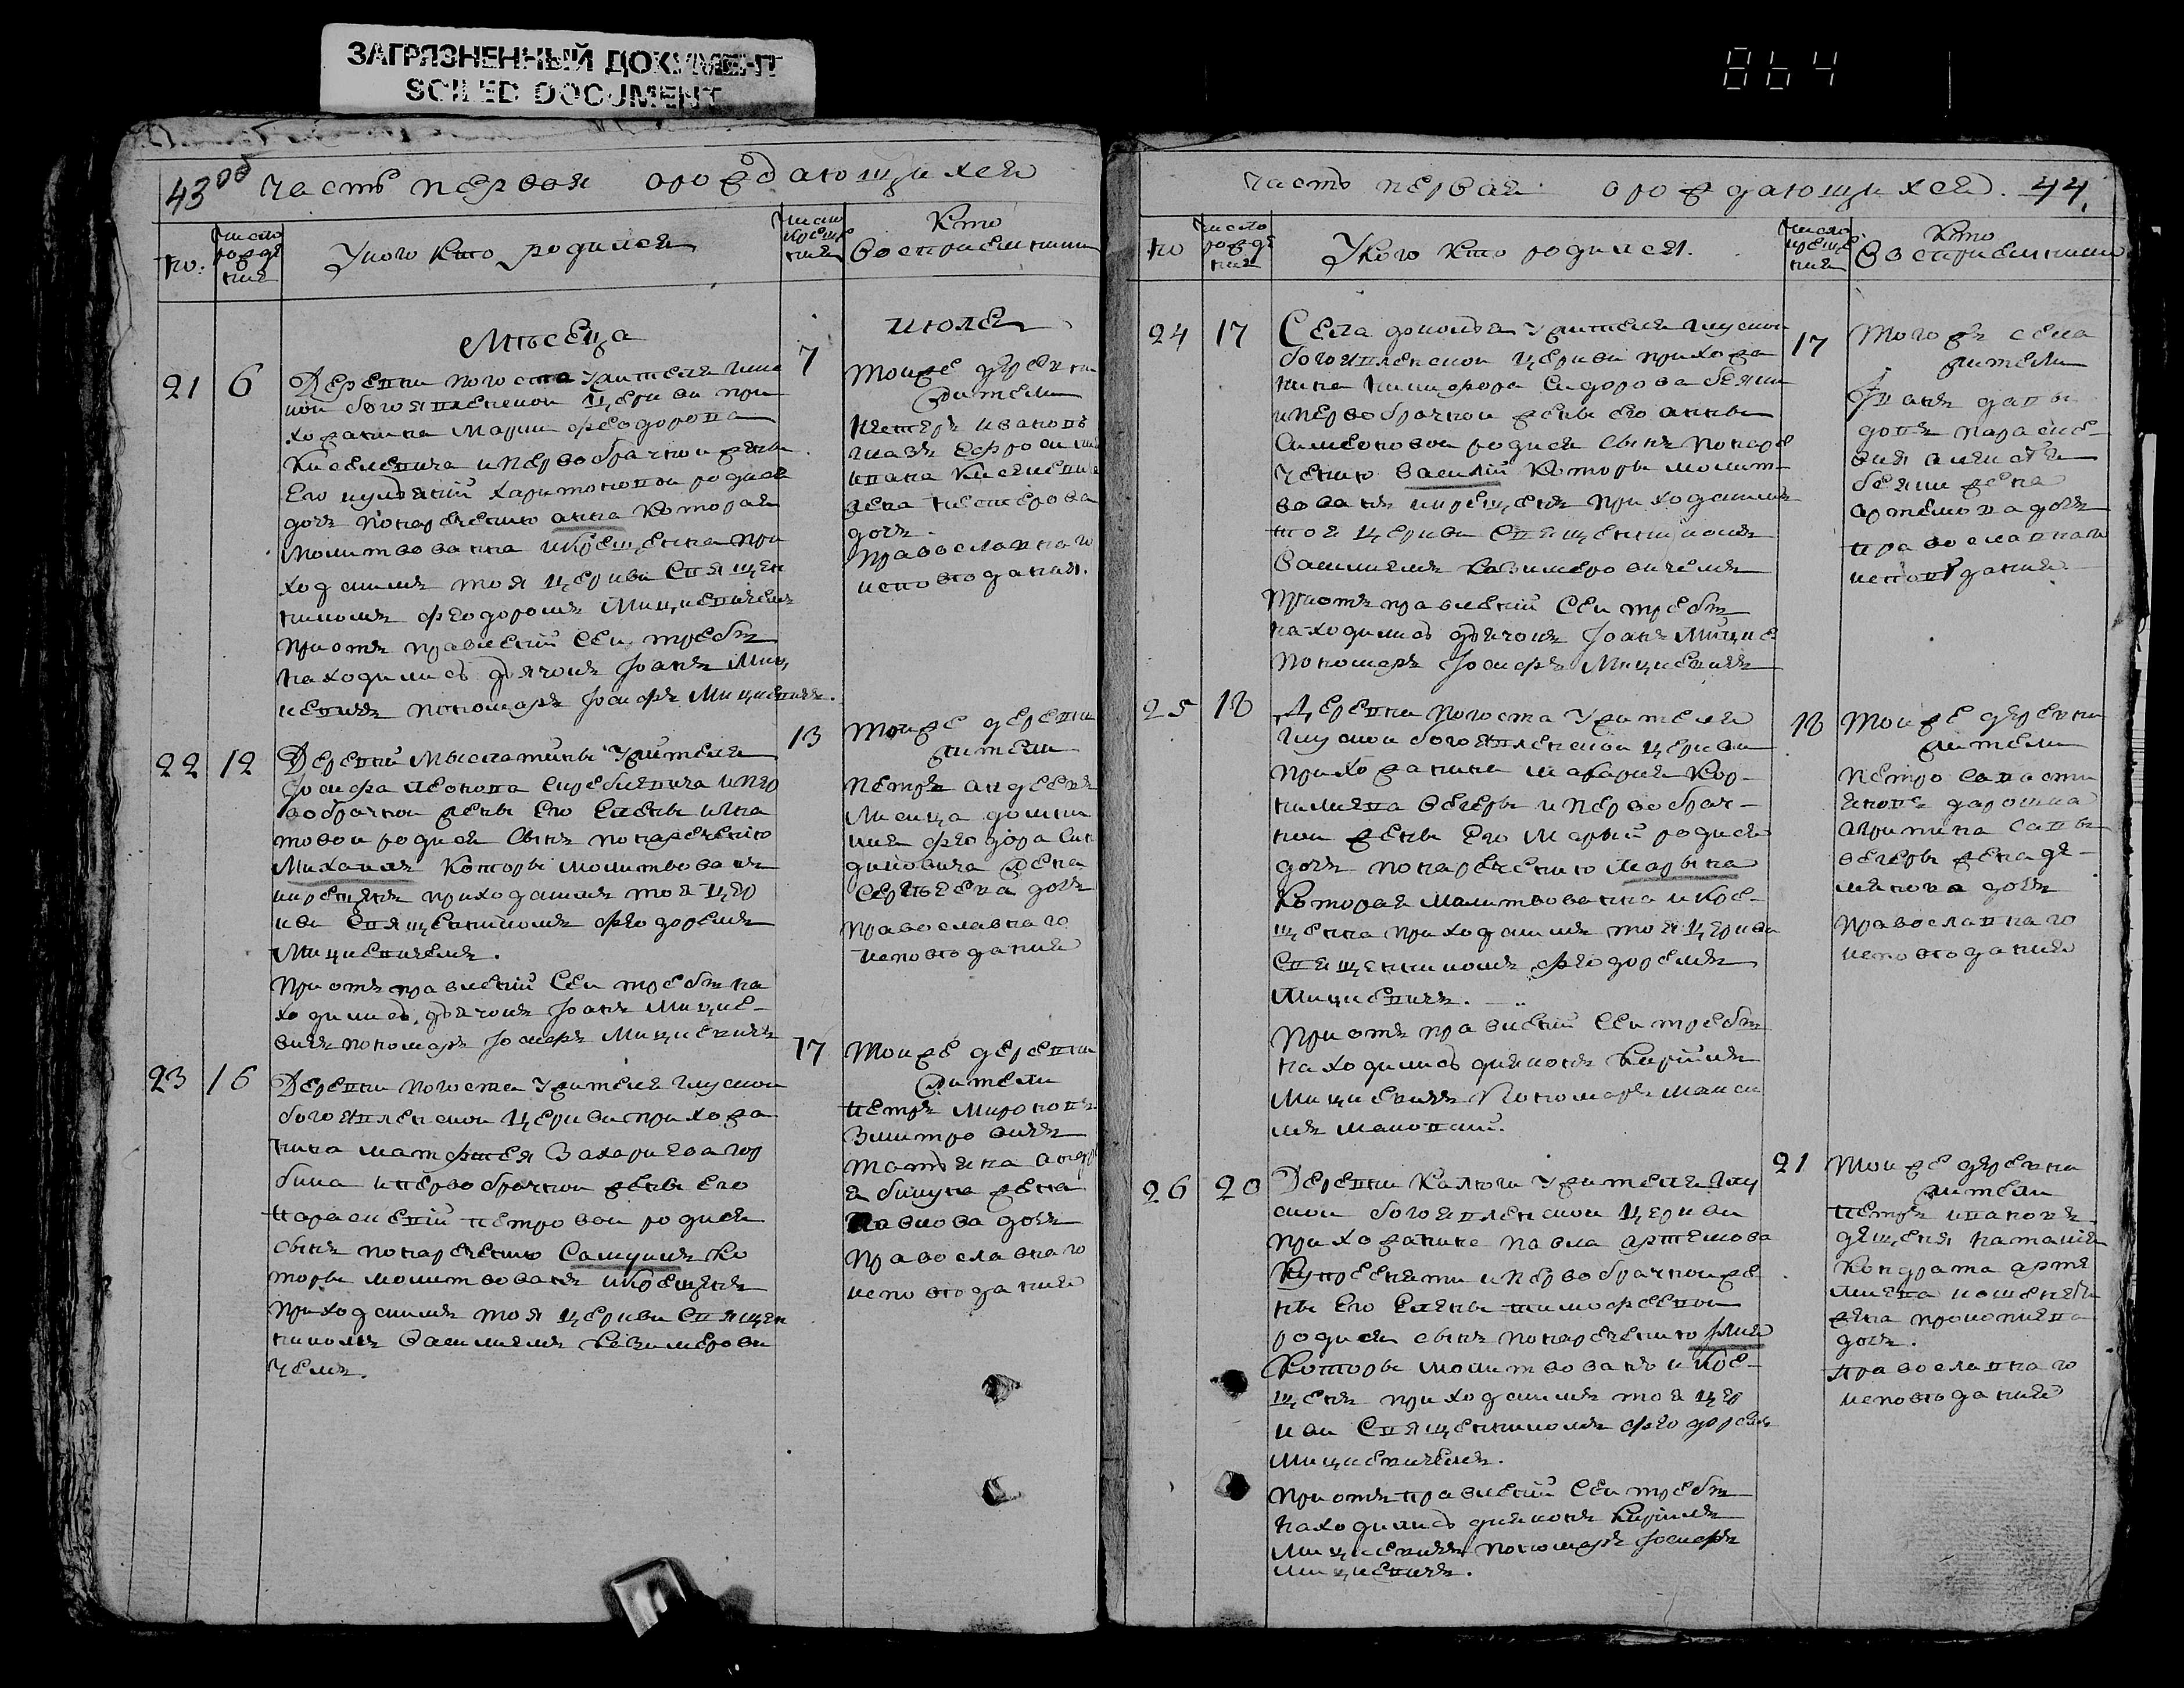 ЗАГРЯЗНЕННЫЙ ДОКУМЕНТ
SOILED DOCUMENT
864
43 об
Часть первая о рождающихся
№:
Число рождения
У кого кто родился
Число крещения
Кто восприемники
Мѣсеца
июля
21
6
Деревни погоста жителя глус
кой богоявленской церкви при
хожанина Марки феодорова
Киселевича и первобрачной жены
его иулянiи харитоновой родися
дочь по наречению анна которая
молитвованна и крещенна при
ходскимъ тоя церкви священ
никомъ феодоромъ Мицкевичемъ
при отправленiи сей требы
находились дьячокъ Iоанъ Миц
кевичъ пономарь Iосифъ Мицкевичъ.
7
тоиже деревни
жители
Нестеръ ивановъ
ивана Киселевича
жена нестерова
дочь.
православнаго
исповѣдания.
22
12
Деревни жителя
Iосифа леонова и пер
вобрачной жены его елены игна
товой родися сынъ по наречению
Михаилъ которы молитвованъ
и крещенъ приходскимъ тоя цер
кви священникомъ феодоромъ
Мицкевичемъ.
при отправленiи сей требы на
ходились дьячокъ Iоанъ Мицке-
вичъ пономарь Iосифъ Мицкевичъ
13
тоиже деревни
жители
петръ андреевъ
феодора
жена
сергѣева дочь
православнаго
исповѣдания
23
16
Деревни погоста жителя глускои
богоявленской церкви прихожа
нина матфея Захариева гор
бина и первобрачной жены его
параскевiи петровой родися
сынъ по наречению Самуилъ ко
торы молитвованъ и крещенъ
приходскимъ тоя церкви священ
никомъ Василиемъ Казимерови
чемъ.
17
тоиже деревни
жители
петръ мироновъ
татьяна
жена
павлова дочь
православнаго
исповѣдания
часть первая о рождающихся. 44.
№
Число рождения
У кого кто родился.
Число крещения
Кто восприемники
24
17
Села жителя глускои
богоявленской церкви прихожа
нина никифора сидорова
и первобрачной жены его анны
симеоновой родися сынъ по наре
чению василiй которы молит-
вованъ и крещенъ приходскимъ
тоя церкви священникомъ
Василиемъ Казимеровичемъ
При отправленiи сей требы
находились дьячокъ Iоанъ Мицке
пономарь Iосифъ Мицкевичъ
17
того жъ села
жители
Iванъ
жена
артемова дочь
православнаго
исповѣдания
25
18
Деревни погоста жителя
глускои богоявленской церкви
прихожанина макария кор-
нилиева и первобрач-
ной жены его Марьи родися
дочь по наречению марьяна
которая молитвованна и кре-
щенна приходскимъ тоя церкви
священникомъ феодоромъ
Мицкевичъ.
при отправленiи сей требы
находились диаконъ Кирiилъ
Мицкевичъ пономарь
18
тоиже деревни
жители
петро
агрипина
жена де-
дочь
православнаго
исповѣдания
26
20
Деревни Калюги жителя глу
скои богоявленской церкви
прихожанина павла артемова
и первобрачной же
ны его елены тимофеевой
родися сынъ по наречению Iлия
которы молитвованъ и кре-
щенъ приходскимъ тоя цер
кви священникомъ феодоромъ
мицкевичемъ.
при отправленiи сей требы
находились диаконъ Кирiилъ
Мицкевичъ пономарь Iосифъ
мицкевичъ.
21
тоиже деревни
жители
петръ ивановъ
наталiя
кондрата
жена прокопиева
дочь.
православнаго
исповѣдания